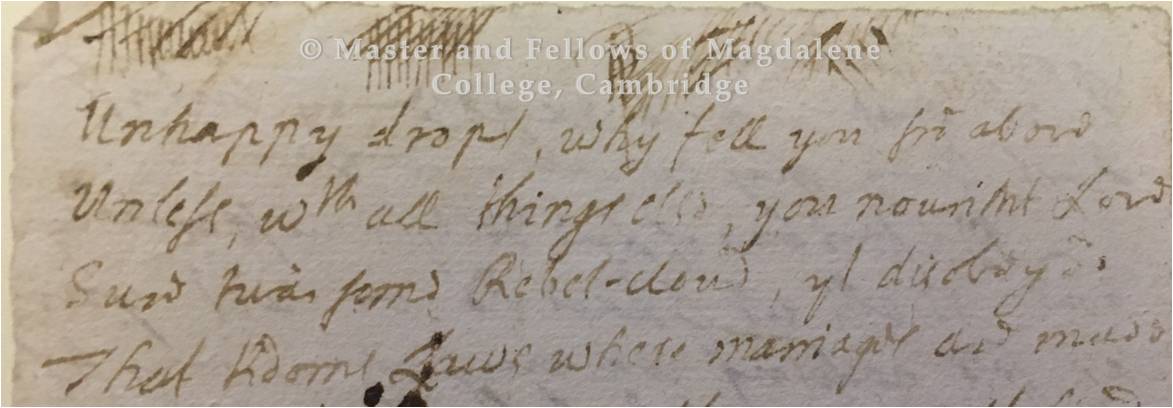 © Master and Fellows of Magdalene
College, Cambridge
Unhappy drops, why fell you frō above
Unlesse, wth all things else, you nourisht Love
Sure twas some Rebel-cloud, yt disobey'd
That Kdoms Lawes where marriages are made